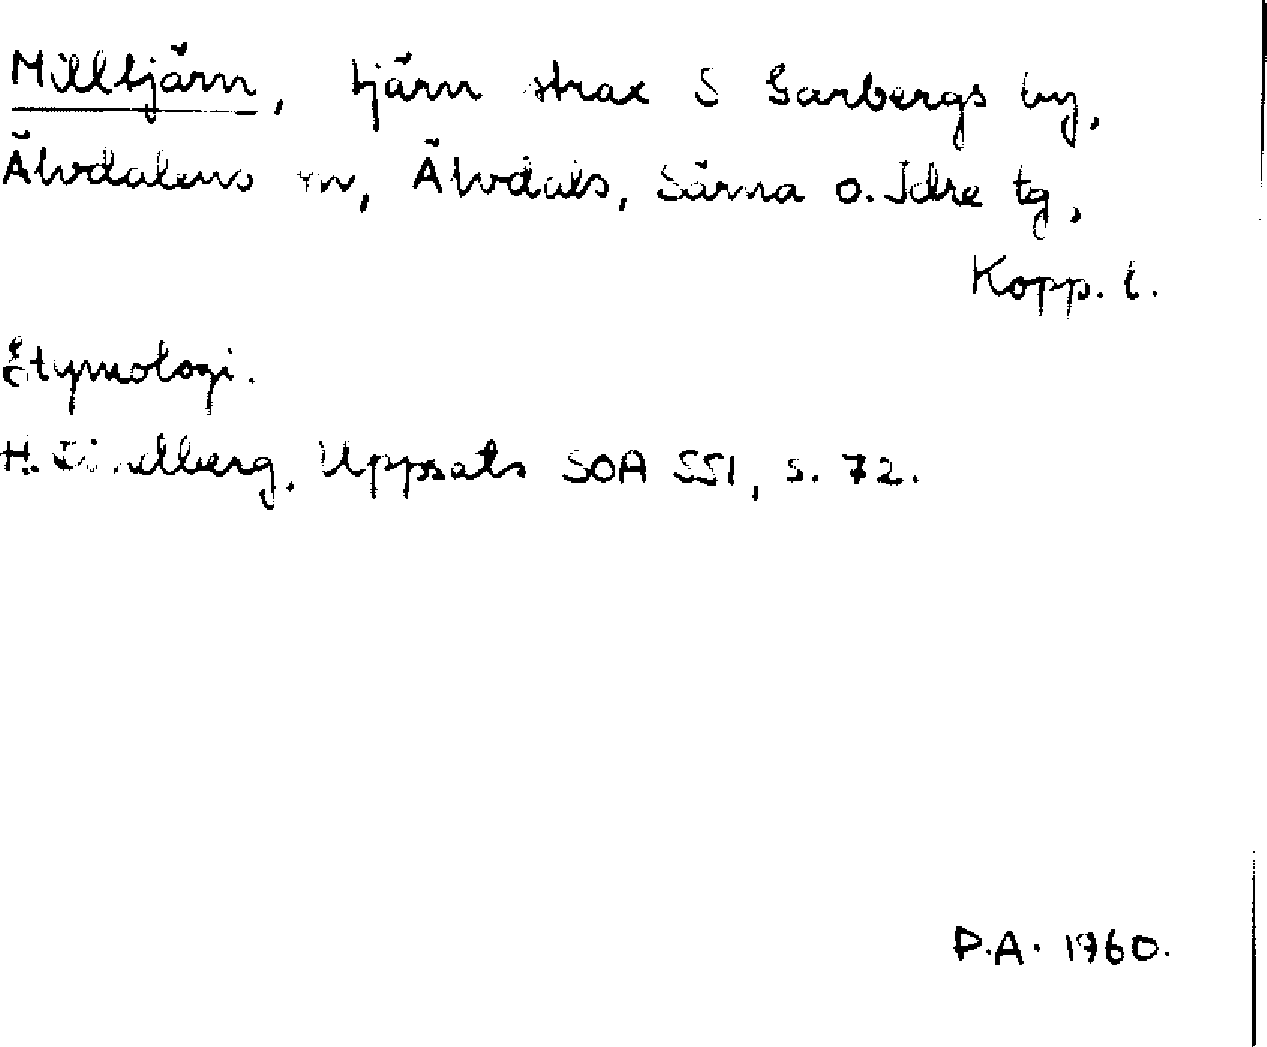 Milltjärn, tjärn strax S Garbergs by,
Älvdalens sn, Älvdals, Särna o. Idre tg,
Kopp. l.
Etymologi.
H. Uppsats SOA 551, s. 72.
D.A. 1960.